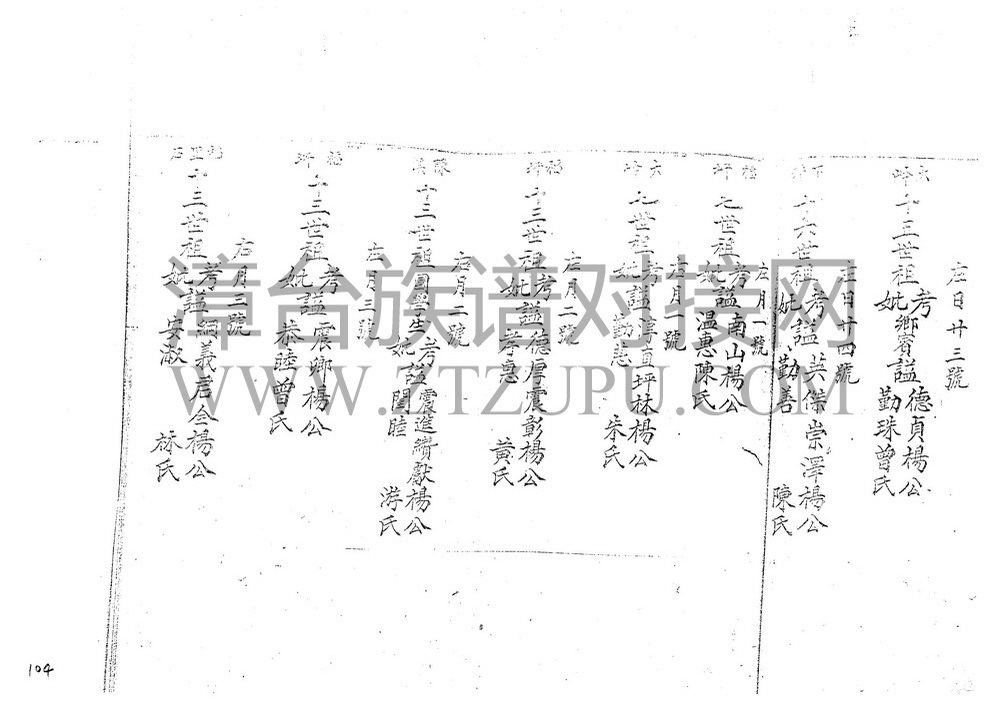 左日廿三號
大岭
十三世祖考妣鄉賓謚德貞楊公勤珠曾氏
左日廿四號
十六世祖考妣謚英傑崇澤楊公勤善陳氏
左月一號
坪
七世祖考妣謚南山楊公温惠陳氏
左月一號
大岭
七世祖考妣謚淳直坪林楊公勤惠朱氏
左月二號
坪
十三世祖考妣謚德厚震彰楊公孝惠黃氏
右月二號
十三世祖國學生考妣謚震進續獻楊公閨睦游氏
左月三號
坪
十三世祖考妣謚震鄉楊公恭睦曾氏
右月三號
十三世祖考妣謚綱義君全楊公安獻林氏
漳台族谱对接网
WWW.ZTZUPU.COM
104